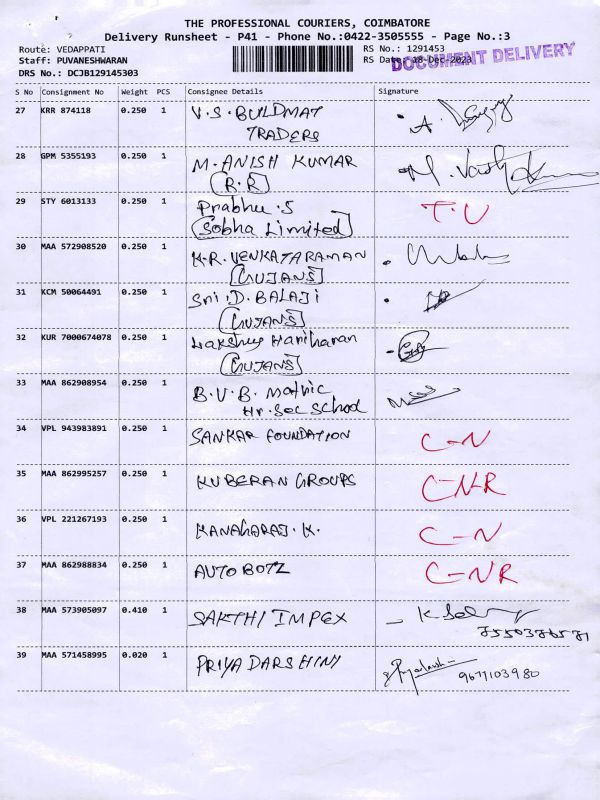 THE PROFESSIONAL COURIERS, COIMBATORE
Delivery Runsheet - P41 - Phone No.:0422-3505555 - Page No.:3
Route: VEDAPPATI
RS No.: 1291453
Staff: PUVANESHWARAN
RS Date: 18-Dec-2023
DOCUMENT DELIVERY
DRS No.: DCJB129145303
S No Consignment No Weight PCS Consignee Details Signature
27 KRR 874118 0.250 1 V.S.BUILDMAT
TRADERS
28 GPM 5355193 0.250 1 M.ANISH KUMAR
(R.R)
29 STY 6013133 0.250 1 Prabhu.S T.U
(Sobha Limited)
30 MAA 572908520 0.250 1 K.R.VENKATARAMAN
(GUJANS)
31 KCM 50064491 0.250 1 Sri.D.BALAJI
(GUJANS)
32 KUR 7000674078 0.250 1 Hariharan
(GUJANS)
33 MAA 862908954 0.250 1 B.V.B. Matric
Hr.Sec School
34 VPL 943983891 0.250 1 SANKAR FOUNDATION C-N
35 MAA 862995257 0.250 1 KUBERAN GROUPS C-NR
36 VPL 221267193 0.250 1 KANAGARAJ.K. C-N
37 MAA 862988834 0.250 1 AUTO BOTZ C-NR
38 MAA 573905097 0.410 1 SAKTHI IMPEX
39 MAA 571458995 0.020 1 PRIYADARSHINI
9677103980